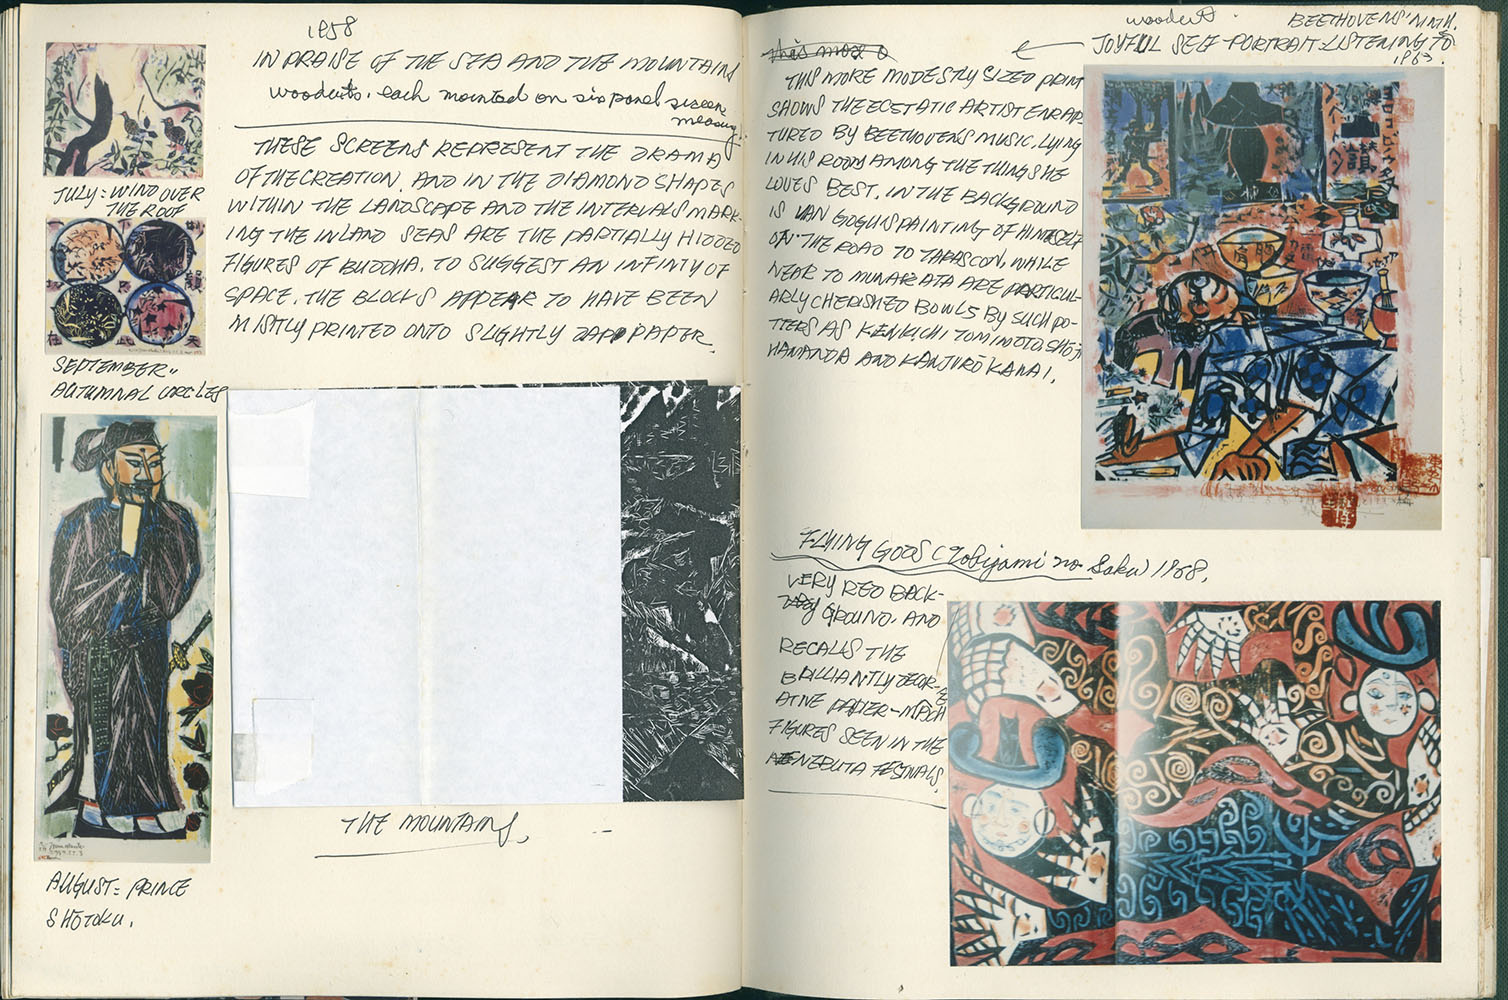 1958
IN PRAISE OF THE SEA AND THE MOUNTAINS
woodcuts. each mounted on six panel screen
measuring.
THESE SCREENS REPRESENT THE DRAMA
OF THE CREATION. AND IN THE DIAMOND SHAPES
WITHIN THE LANDSCAPE AND THE INTERVALS MARK-
ING THE INLAND SEAS ARE THE PARTIALLY HIDDED
FIGURES OF BUDDHA. TO SUGGEST AN INFINITY OF
SPACE. THE BLOCKS APPEAR TO HAVE BEEN
MISTLY PRINTED ONTO SLIGHTLY PAPER.
JULY = WIND OVER
THE ROOF
SEPTEMBER =
AUTUMNAL CIRCLES
AUGUST = PRINCE
SHŌTOKU.
THE MOUNTAINS.
woodcut.
BEETHOVENS' NINTH.
JOYFUL SELF-PORTRAIT: LISTENING TO
1963.
this more
THIS MORE MODESTLY SIZED PRINT
SHOWS THE ECSTATIC ARTIST ENRAP-
TURED BY BEETHOVEN'S MUSIC. LYING
IN HIS ROOM AMONG THE THINGS HE
LOVES BEST. IN THE BACKGROUND
IS VAN GOGH'S PAINTING OF HIMSELF
ON THE ROAD TO TARASCON, WHILE
NEAR TO MUNAKATA ARE PARTICUL-
ARLY CHERISHED BOWLS BY SUCH PO-
TTERS AS KENKICHI TOMIMOTO, SHŌJI
HAMANDA AND KANJIRŌ KAWAI.
FLYING GODS (Tobigami no Saku) 1968.
VERY RED BACK-
GROUND. AND
RECALLS THE
BRILLIANTLY DECOR-
ATIVE PAPIER-MÂCHÉ
FIGURES SEEN IN THE
NENEBUTA FESTIVALS.